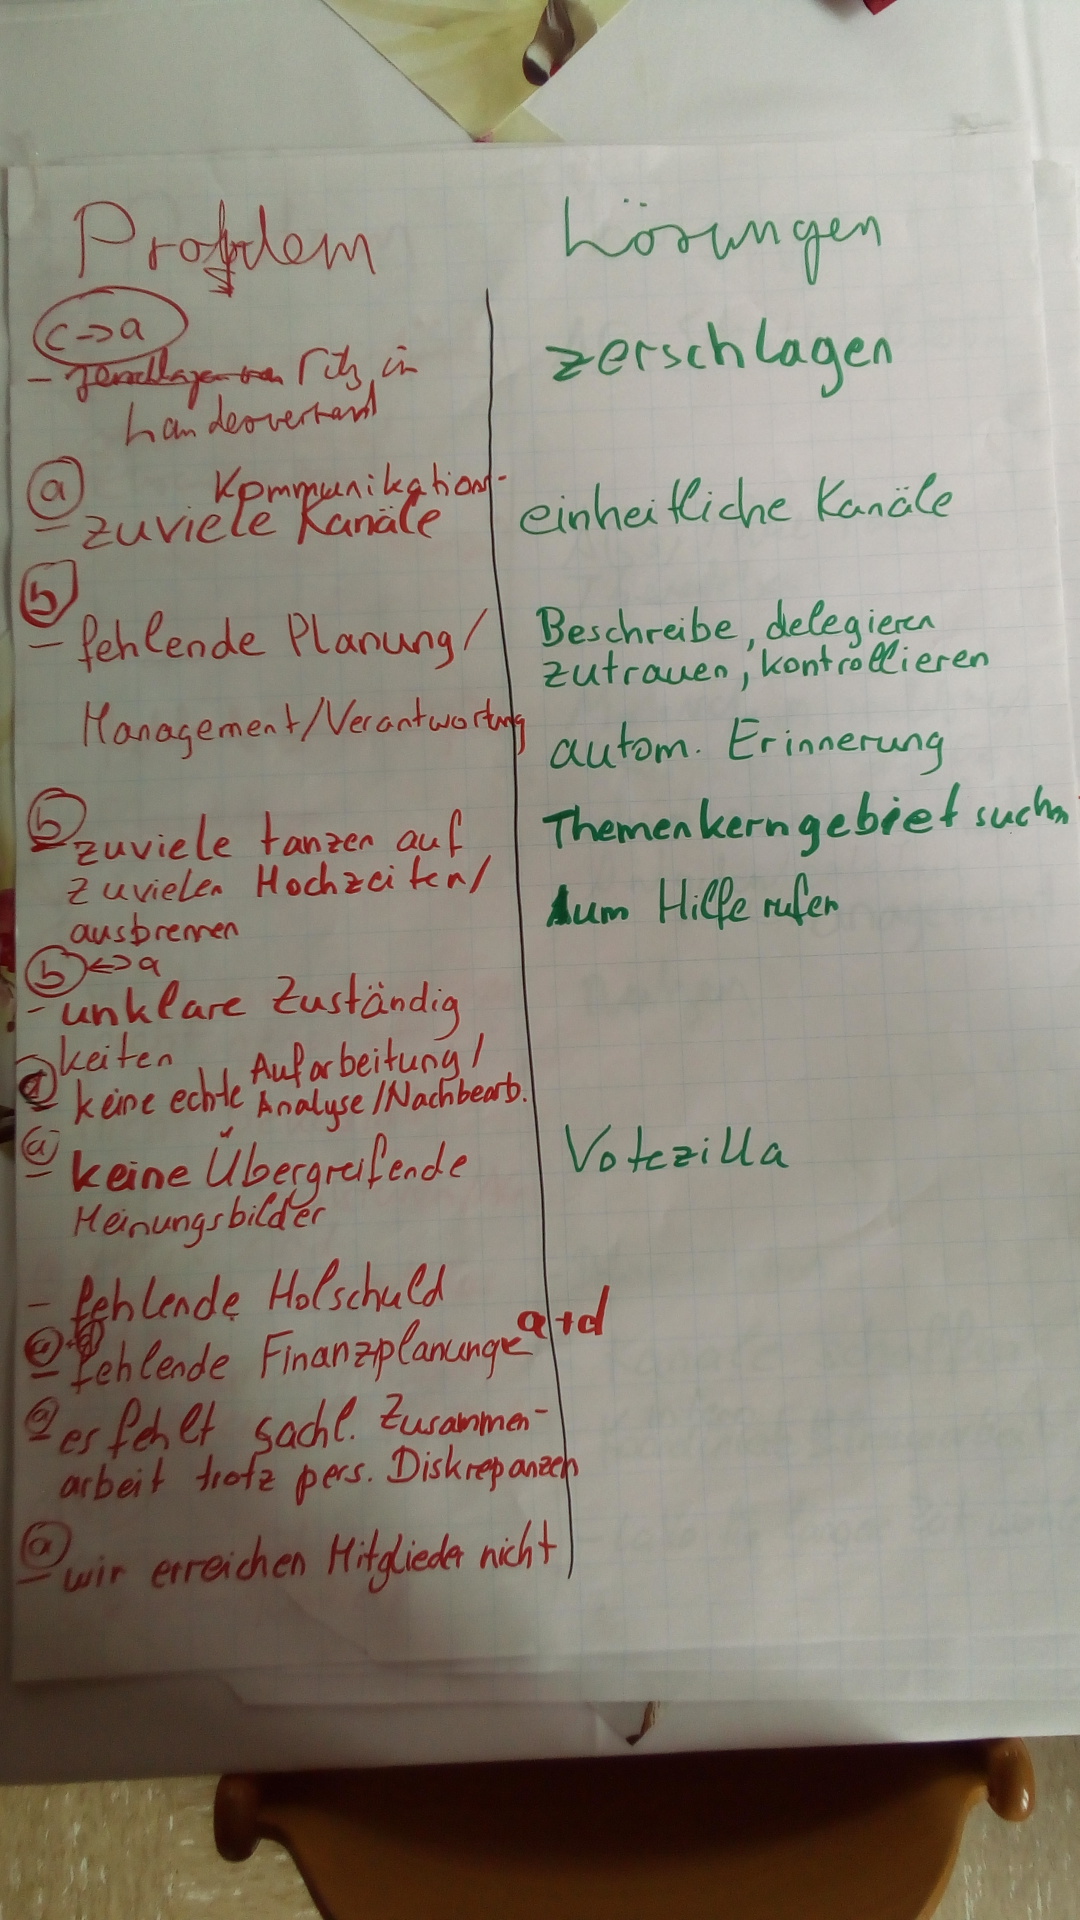 Problem
Lösungen
c->a
- in
Landesverband
zerschlagen
a
Kommunikations-
- zuviele Kanäle
einheitliche Kanäle
b
- fehlende Planung/
Management/Verantwortung
Beschreibe, delegieren
zutrauen, kontrollieren
autom. Erinnerung
b
- zuviele tanzen auf
zuvielen Hochzeiten/
ausbremen
Themenkerngebiet suchen
um Hilfe rufen
b <-> a
- unklare Zuständig
keiten
keine echte Aufarbeitung/
Analyse/Nachbearb.
a
- keine Übergreifende
Meinungsbilder
Votezilla
- fehlende Holschuld
- fehlende Finanzplanung a+d
a
- es fehlt sachl. Zusammen-
arbeit trotz pers. Diskrepanzen
a
- wir erreichen Mitglieder nicht